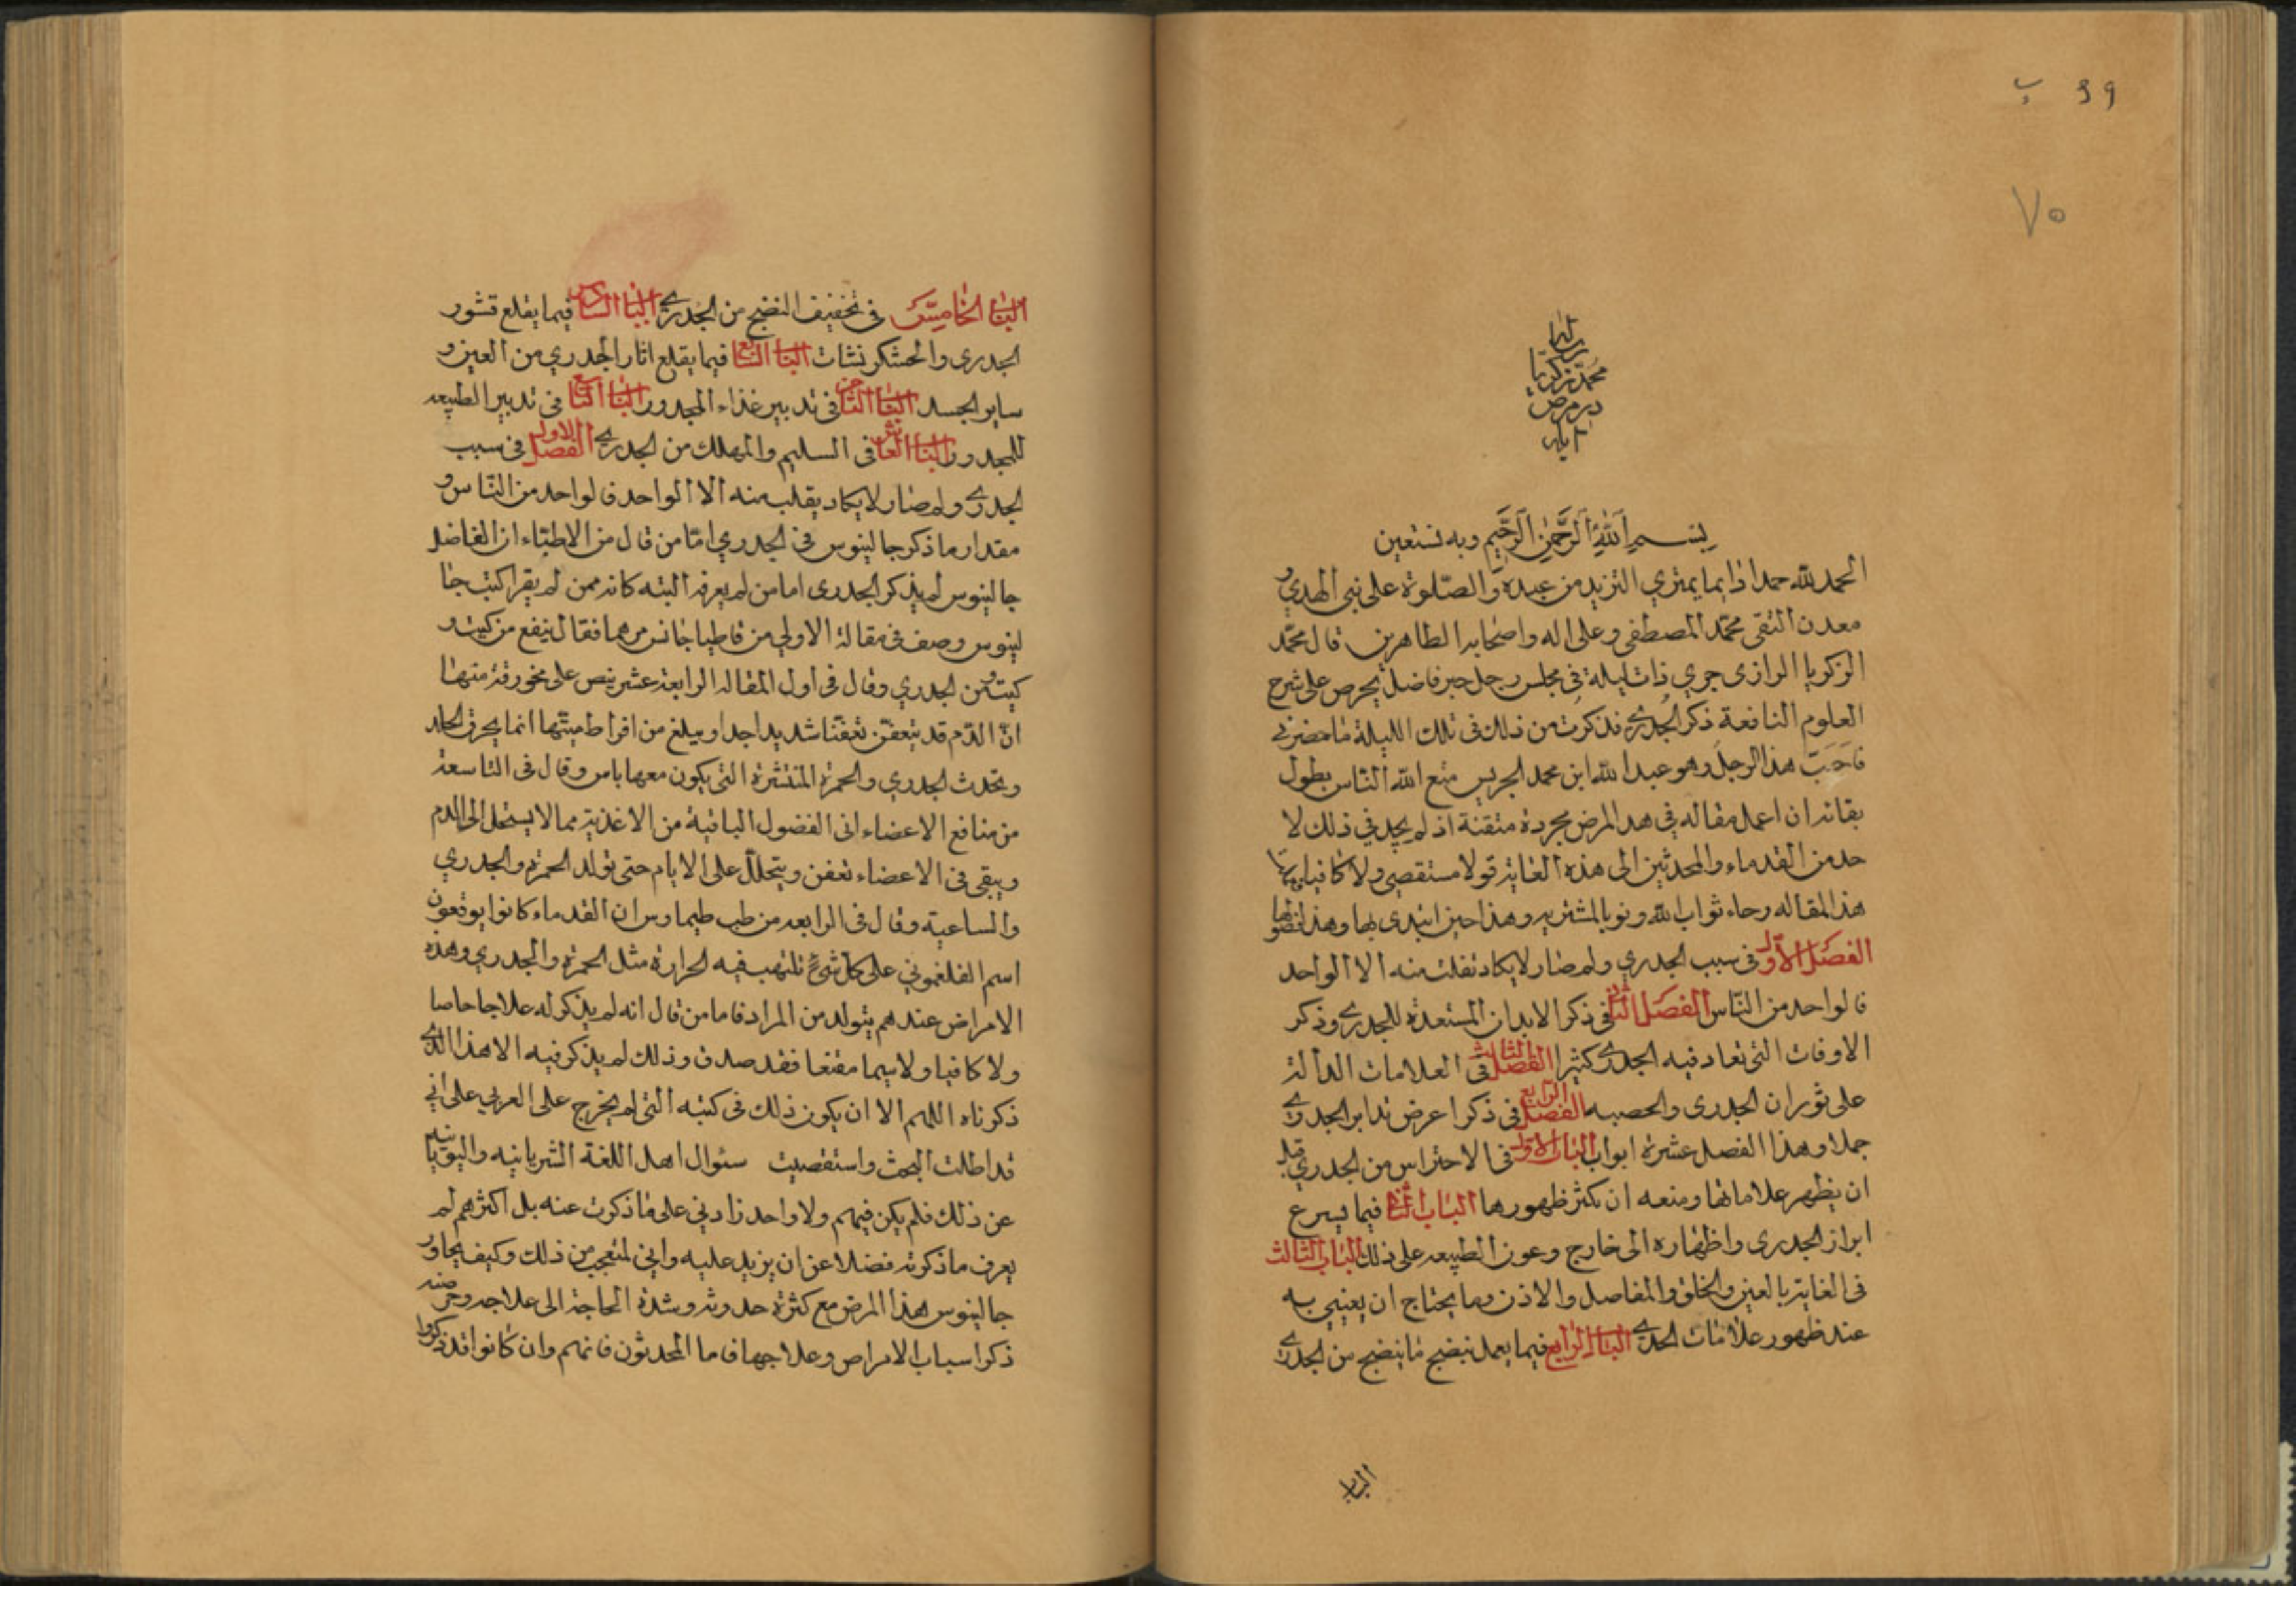 39 ب
٧٥
رساله
محمد زكريا
در مرض
ابله
بسم الله الرحمن الرحيم وبه نستعين
الحمد لله حمدا دايما يمتري التزيد من عبده والصلوة على نبي الهدي و
معدن التقى محمد المصطفى وعلى اله واصحابه الطاهرين قال محمد
الزكريا الرازى جري ذات ليلة في مجلس رجل حبر فاضل يحرص على شرح
العلوم النافعة ذكر الجدري فذكرت من ذلك فى تلك الليلة ما حضرني
فاحب هذا الرجل وهو عبد الله ابن محمد الجريس متع الله الناس بطول
بقائه ان اعمل مقاله في هدا المرض مجردة متقنة اذ لم يجد في ذلك لا
حد من القدماء والمحدثين الى هذه الغاية قولا مستقصى ولا كافيا
هذا المقاله رجاء ثواب الله ونوبا لمشتريه وهذا حين ابتدى بها وهذا فصولها
الفصل الاول فى سبب الجدري ولم صار لا يكاد تفلت منه الا الواحد
فالواحد من الناس الفصل الثاني فى ذكر الابدان المستعدة للجدري وذكر
الاوقات التى تعاد فيه الجدري كثيرا الفصل الثالث فى العلامات الدالة
على ثوران الجدرى والحصبه الفصل الرابع فى ذكر اعرض تدابر الجدري
جملا وهذا الفصل عشرة ابواب الباب الاول فى الاحتراس من الجدري قبل
ان يظهر علاماتها ومنعه ان تكثر ظهورها الباب الثاني فيما يسرع
ابراز الجدرى واظهاره الى خارج وعون الطبيعه على ذلك الباب الثالث
فى الغاية بالعين والحلق والمفاصل والاذن وما يحتاج ان يعني به
عند ظهور علامات الجدري الباب الرابع فيما يعمل نبضج ما ينضج من الجدري
الباب
الباب الخامس فى تخفيف النضج من الجدري الباب السادس فيما يقلع قشور
الجدرى والخشكرنشات الباب السابع فيما يقلع اثار الجدري من العين و
ساير الجسد الباب الثامن فى تدبير غذاء المجدور الباب التاسع فى تدبير الطبيعه
للمجدور الباب العاشر فى السليم والمهلك من الجدري الفصل الاول فى سبب
الجدري ولم صار لا يكاد يقلب منه الا الواحد فالواحد من الناس و
مقدار ما ذكر جالينوس فى الجدري امّا من قال من الاطباء ان الفاضل
جالينوس لم يذكر الجدرى اما من لم يعرفه البته كانه ممن لم يقرا كتب جا
لينوس وصف فى مقالة الاولى من قاطاجانس مرهما فقال ينفع من كيت و
كيت ومن الجدري وقال فى اول المقالة الرابعة عشر ينص على نحو رقة منها
انّ الدّم قد يتعفن تعفنا شديدا جدا ويبلغ من افراط ميتها انما يحرق الجلد
ويحدث الجدري والحمرة المنتشرة التى يكون معها باس وقال فى التاسعة
من منافع الاعضاء انى الفضول الباقية من الاغذية مما لا يستحل الى الدم
ويبقى فى الاعضاء تعفن ويتحلل على الايام حتى تولد الحمرة والجدري
والساعية وقال فى الرابعه من طب طيماوس ان القدماء كانوا يوقعون
اسم الفلغمونى على كل شئ تلتهب فيه الحرارة مثل الحمرة والجدري وهذه
الامراض عندهم يتولد من المراد فاما من قال انه لم يذكر له علاجا خاصا
ولا كافيا ولا سيما مقنعا فقد صدق وذلك لم يذكر فيه الا هذا الذي
ذكرناه اللهم الا ان يكون ذلك فى كتبه التى لم يخرج على العربي على انى
قد اطلت البحث واستقصيت سئوال اهل اللغة الشريانيه واليونانيه
عن ذلك فلم يكن فيهم ولا واحد زادني على ما ذكرت عنه بل اكثرهم لم
يعرف ما ذكرته فضلا عن ان يزيد عليه واني لمتعجب من ذلك وكيف يجاوز
جالينوس هذا المرض مع كثرة حدوثه وشدة الحاجة الى علاجه وحرصه
ذكرا سباب الامراض وعلاجها فاما المحدثون فانهم وان كانوا قد ذكروا